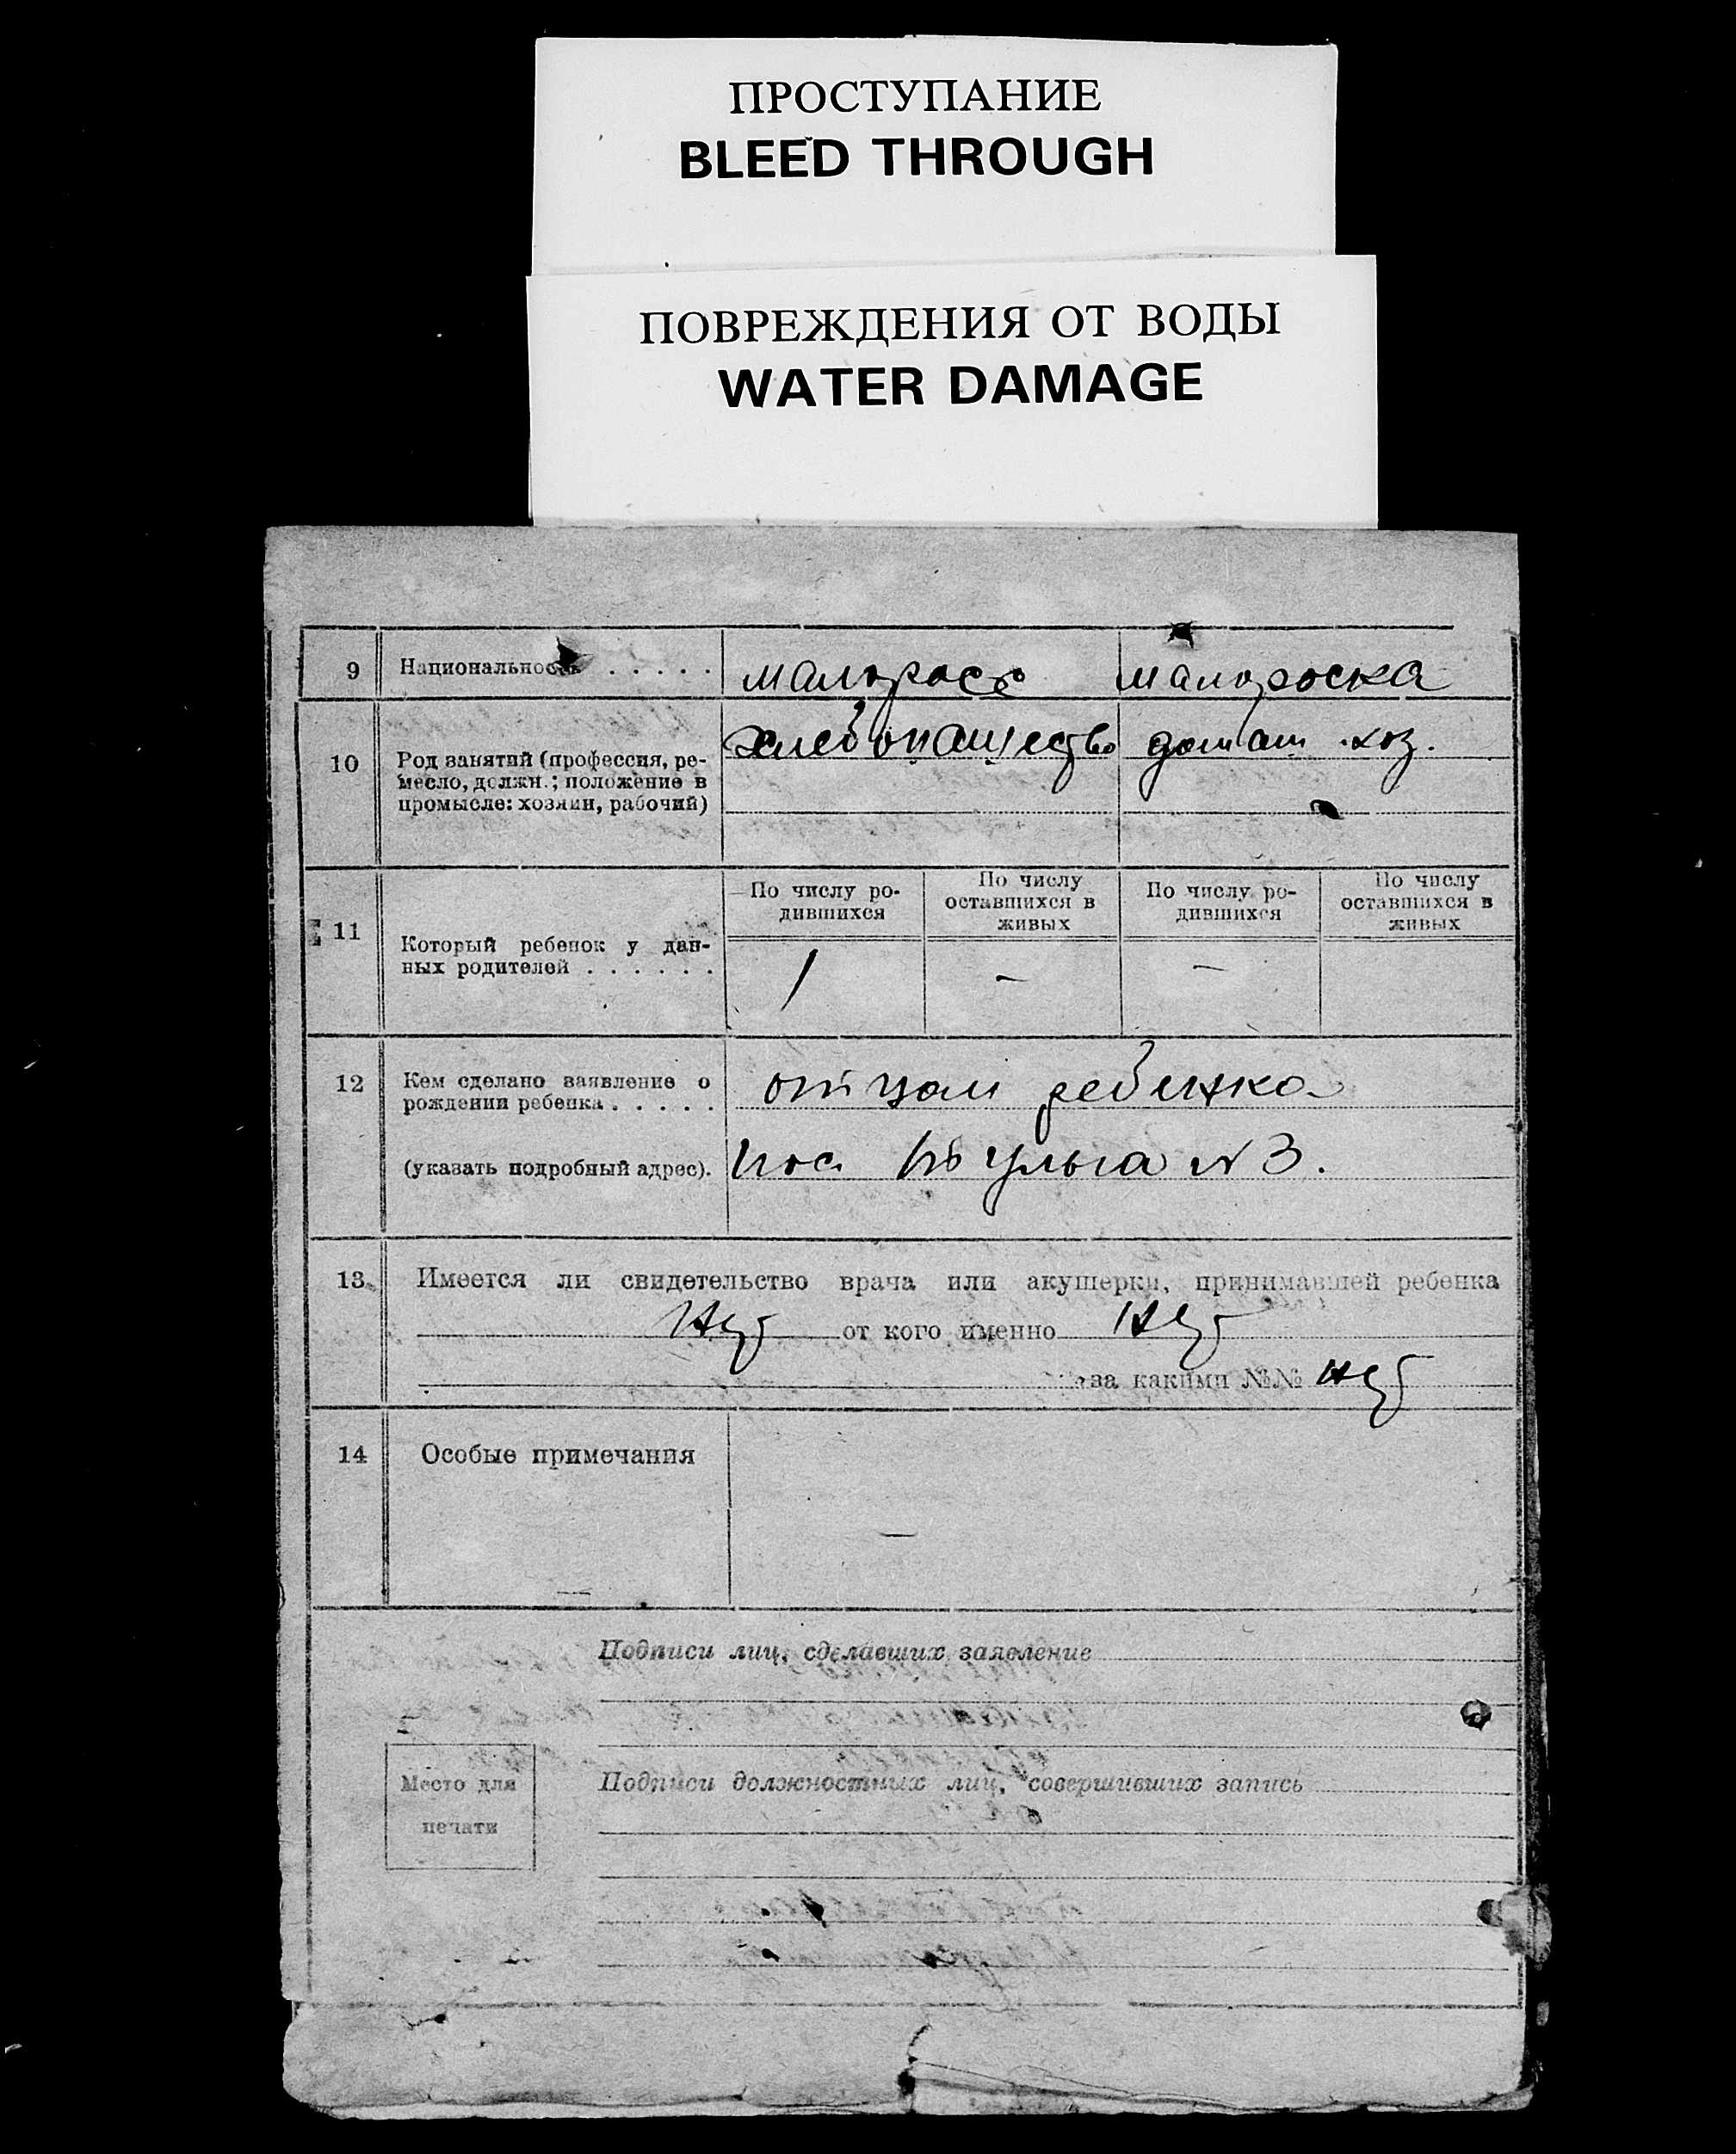 ПРОСТУПАНИЕ
BLEED THROUGH
ПОВРЕЖДЕНИЯ ОТ ВОДЫ
WATER DAMAGE
9 Национальность . . . . . малоросс малороска
10 Род занятий (профессия, ре-
месло, должн.; положение в
промысле: хозяин, рабочий)
хлебопашество домаш. хоз.
11 Который ребенок у дан-
ных родителей . . . . . .
По числу ро-
дившихся
По числу
оставшихся в
живых
По числу ро-
дившихся
По числу
оставшихся в
живых
1 — —
12 Кем сделано заявление о
рождении ребенка . . . . .
отцом ребенка
(указать подробный адрес).
пос. № 3.
13 Имеется ли свидетельство врача или акушерки, принимавшей ребенка
нет от кого именно нет
за какими №№ нет
14 Особые примечания
—
Подписи лиц, сделавших заявление
Место для
печати
Подписи должностных лиц, совершивших запись